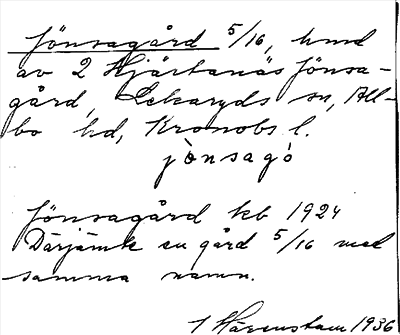 Jönsagård 5/16, hmd
av 2 Hjärtanäs Jönsa-
gård, Lekaryds sn, All-
bo hd, Kronobs l.
jònsagò
Jönsagård kb 1924
Därjämte en gård 5/16 med
samma namn.
1936